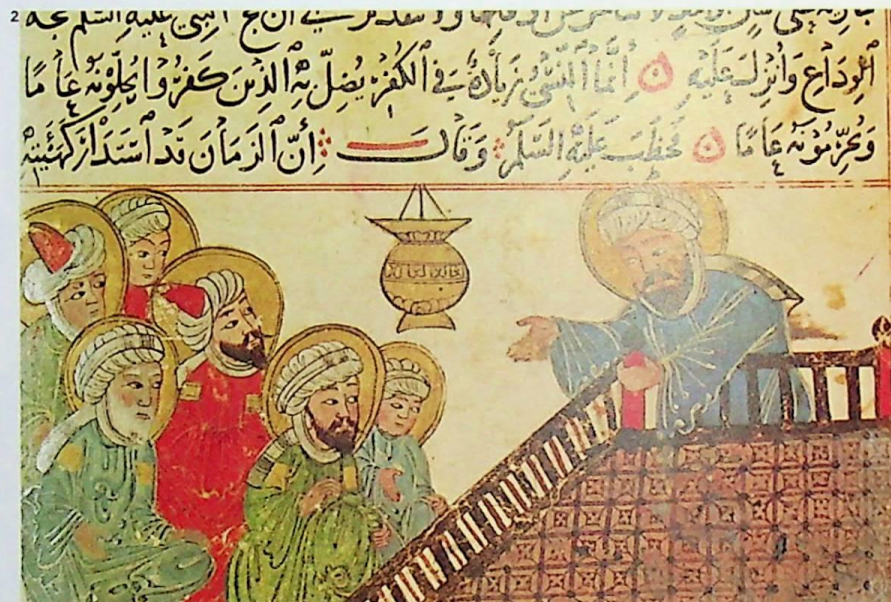 2
النبي عليه السلم حجة
الوداع وانزل عليه إنما النسئ زيادة في الكفر يضل به الذين كفروا يحلونه عاما
ويحرمونه عاما فخطب عليه السلم وقال إن الزمان قد استدار كهيئته